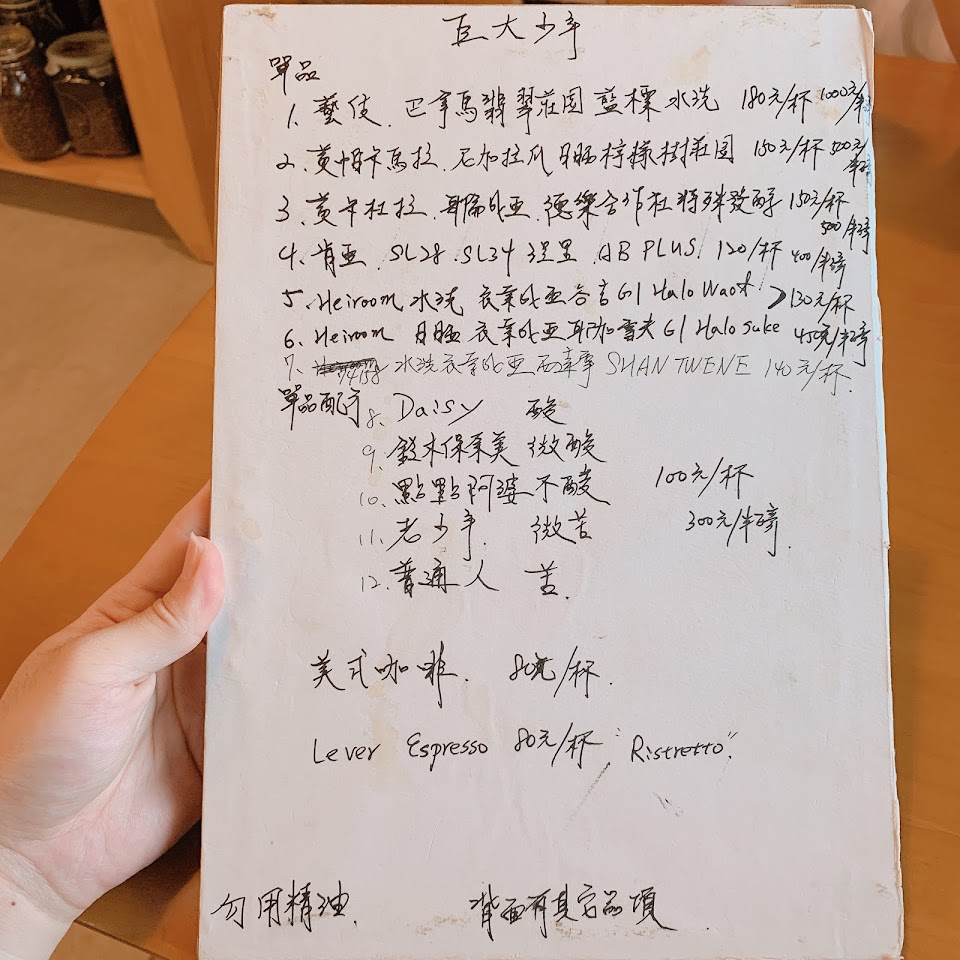 巨大少年
單品
1. 藝伎. 巴拿馬翡翠莊園 藍標 水洗 180元/杯 1000元/半
2. 黃帕卡馬拉. 尼加拉瓜 日晒檸檬樹莊園 150元/杯 500元/半磅
3. 黃卡杜拉. 哥倫比亞. 德樂合作社特殊發酵 150元/杯 500/半磅
4. 肯亞. SL28. SL34 涅里 .AB PLUS. 120/杯 400/半磅
5. Heiroom 水洗 衣索比亞谷吉G1 Halo
6. Heiroom 日晒 衣索比亞耶加雪夫G1 Halo Suke
130元/杯
450元/半磅
7. 水洗衣索比亞西達摩 SHANTWENE 140元/杯.
單品配方 8. Daisy 酸
9. 鈴木保奈美 微酸
10. 點點阿婆 不酸 100元/杯
11. 老少年. 微苦 300元/半磅.
12. 普通人 苦.
美式咖啡. 80元/杯.
Lever Espresso 80元/杯 "Ristretto".
勿用精油. 背面有其它品項